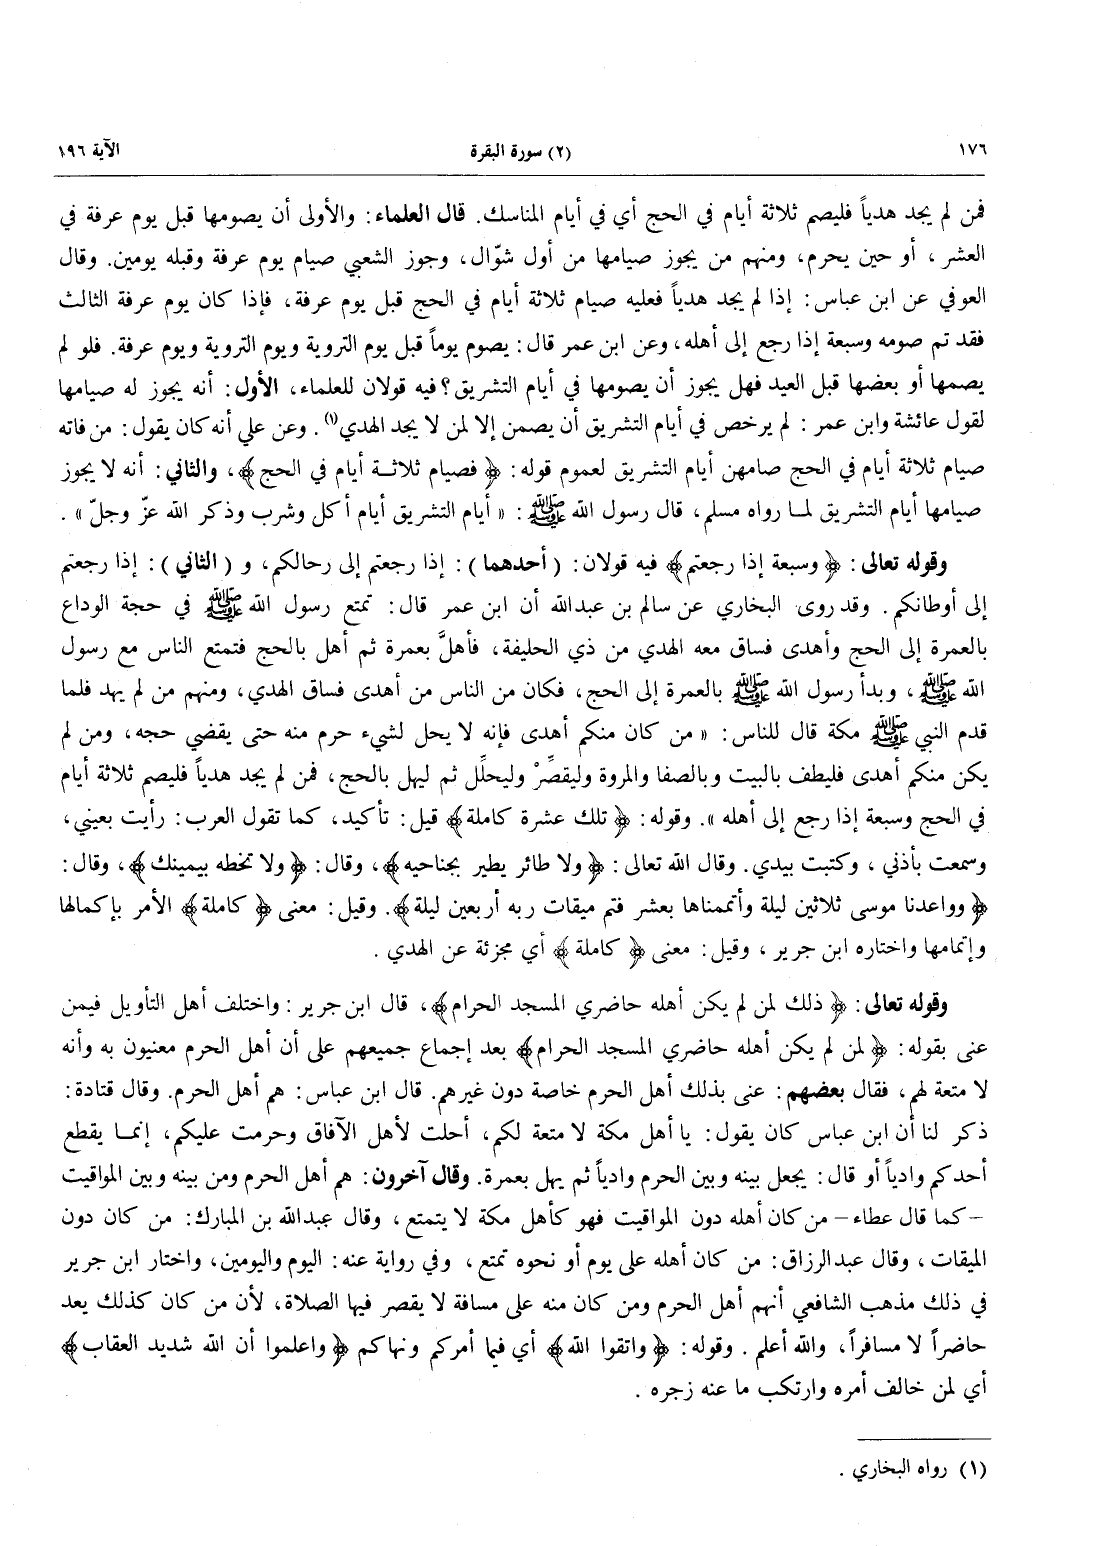 ١٧٦ (٢) سورة البقرة الآية ١٩٦
فمن لم يجد هدياً فليصم ثلاثة أيام في الحج أي في أيام المناسك. قال العلماء: والأولى أن يصومها قبل يوم عرفة في
العشر، أو حين يحرم، ومنهم من يجوز صيامها من أول شوّال، وجوز الشعبي صيام يوم عرفة وقبله يومين. وقال
العوفي عن ابن عباس: إذا لم يجد هدياً فعليه صيام ثلاثة أيام في الحج قبل يوم عرفة، فإذا كان يوم عرفة الثالث
فقد تم صومه وسبعة إذا رجع إلى أهله، وعن ابن عمر قال: يصوم يوماً قبل يوم التروية ويوم التروية ويوم عرفة. فلو لم
يصمها أو بعضها قبل العيد فهل يجوز أن يصومها في أيام التشريق؟ فيه قولان للعلماء، الأول: أنه يجوز له صيامها
لقول عائشة وابن عمر: لم يرخص في أيام التشريق أن يصمن إلا لمن لا يجد الهدي(١). وعن علي أنه كان يقول: من فاته
صيام ثلاثة أيام في الحج صامهن أيام التشريق لعموم قوله: ﴿فصيام ثلاثة أيام في الحج﴾، والثاني: أنه لا يجوز
صيامها أيام التشريق لما رواه مسلم، قال رسول الله ﷺ: «أيام التشريق أيام أكل وشرب وذكر الله عزّ وجلّ».
وقوله تعالى: ﴿وسبعة إذا رجعتم﴾ فيه قولان: (أحدهما): إذا رجعتم إلى رحالكم، و (الثاني): إذا رجعتم
إلى أوطانكم. وقد روى البخاري عن سالم بن عبدالله أن ابن عمر قال: تمتع رسول الله ﷺ في حجة الوداع
بالعمرة إلى الحج وأهدى فساق معه الهدي من ذي الحليفة، فأهلَّ بعمرة ثم أهل بالحج فتمتع الناس مع رسول
الله ﷺ، وبدأ رسول الله ﷺ بالعمرة إلى الحج، فكان من الناس من أهدى فساق الهدي، ومنهم من لم يهد فلما
قدم النبي ﷺ مكة قال للناس: «من كان منكم أهدى فإنه لا يحل لشيء حرم منه حتى يقضي حجه، ومن لم
يكن منكم أهدى فليطف بالبيت وبالصفا والمروة وليقصِّرْ وليحلِّل ثم ليهل بالحج، فمن لم يجد هدياً فليصم ثلاثة أيام
في الحج وسبعة إذا رجع إلى أهله». وقوله: ﴿تلك عشرة كاملة﴾ قيل: تأكيد، كما تقول العرب: رأيت بعيني،
وسمعت بأذني، وكتبت بيدي. وقال الله تعالى: ﴿ولا طائر يطير بجناحيه﴾، وقال: ﴿ولا تخطه بيمينك﴾، وقال:
﴿وواعدنا موسى ثلاثين ليلة وأتممناها بعشر فتم ميقات ربه أربعين ليلة﴾. وقيل: معنى ﴿كاملة﴾ الأمر بإكمالها
وإتمامها واختاره ابن جرير، وقيل: معنى ﴿كاملة﴾ أي مجزئة عن الهدي.
وقوله تعالى: ﴿ذلك لمن لم يكن أهله حاضري المسجد الحرام﴾، قال ابن جرير: واختلف أهل التأويل فيمن
عنى بقوله: ﴿لمن لم يكن أهله حاضري المسجد الحرام﴾ بعد إجماع جميعهم على أن أهل الحرم معنيون به وأنه
لا متعة لهم، فقال بعضهم: عنى بذلك أهل الحرم خاصة دون غيرهم. قال ابن عباس: هم أهل الحرم. وقال قتادة:
ذكر لنا أن ابن عباس كان يقول: يا أهل مكة لا متعة لكم، أحلت لأهل الآفاق وحرمت عليكم، إنما يقطع
أحدكم وادياً أو قال: يجعل بينه وبين الحرم وادياً ثم يهل بعمرة. وقال آخرون: هم أهل الحرم ومن بينه وبين المواقيت
- كما قال عطاء - من كان أهله دون المواقيت فهو كأهل مكة لا يتمتع، وقال عبدالله بن المبارك: من كان دون
الميقات، وقال عبدالرزاق: من كان أهله على يوم أو نحوه تمتع، وفي رواية عنه: اليوم واليومين، واختار ابن جرير
في ذلك مذهب الشافعي أنهم أهل الحرم ومن كان منه على مسافة لا يقصر فيها الصلاة، لأن من كان كذلك يعد
حاضراً لا مسافراً، والله أعلم. وقوله: ﴿واتقوا الله﴾ أي فيما أمركم ونهاكم ﴿واعلموا أن الله شديد العقاب﴾
أي لمن خالف أمره وارتكب ما عنه زجره.
(١) رواه البخاري.